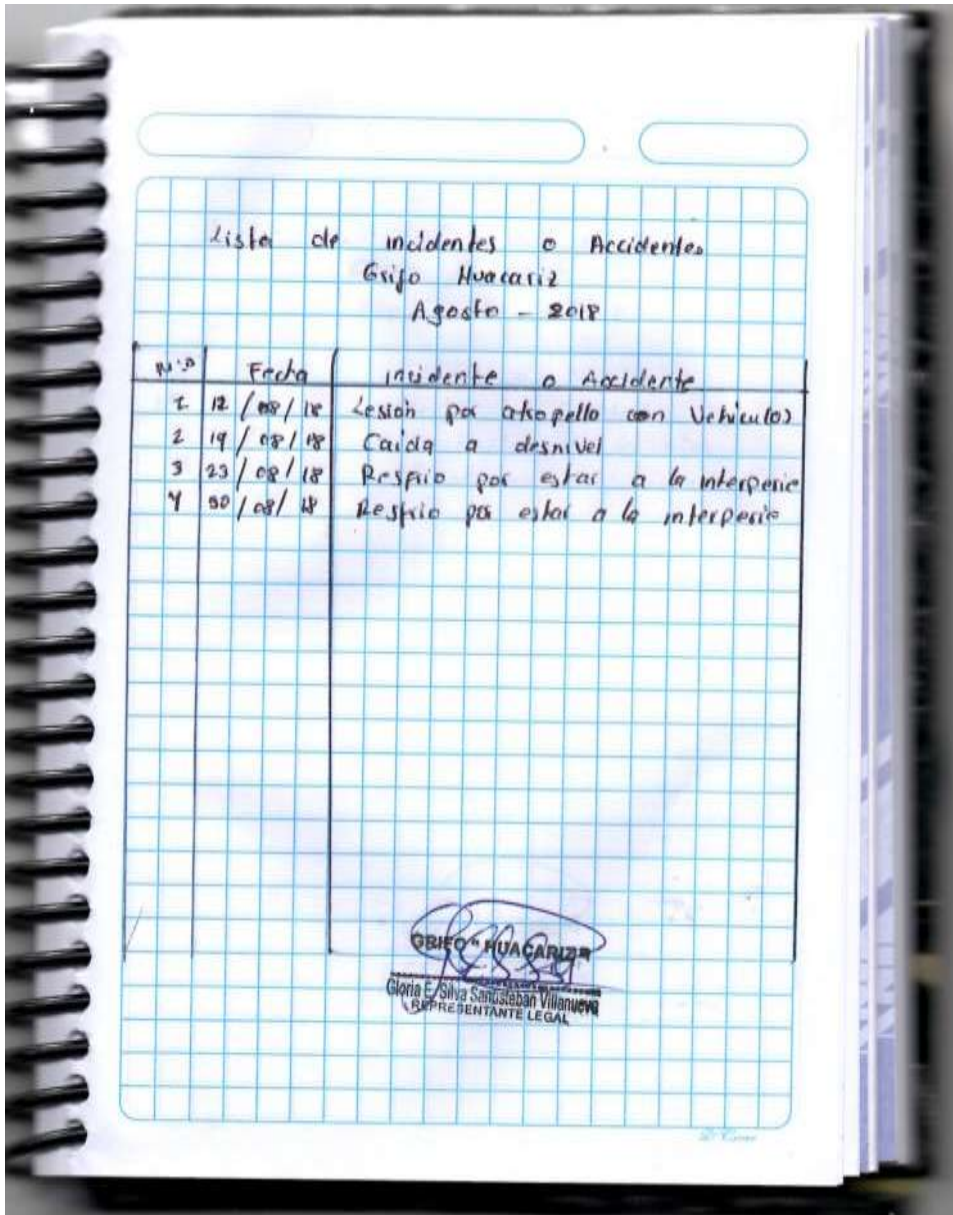 Lista de incidentes o Accidentes
Grifo Huacariz
Agosto - 2018
N° Fecha incidente o Accidente
1 12/08/18 Lesion por atropello con Vehiculos
2 19/08/18 Caida a desnivel
3 23/08/18 Resfrio por estar a la interperie
4 30/08/18 Resfrio por estar a la interperie
GRIFO "HUACARIZ"
Gloria E. Silva Santisteban Villanueva
REPRESENTANTE LEGAL